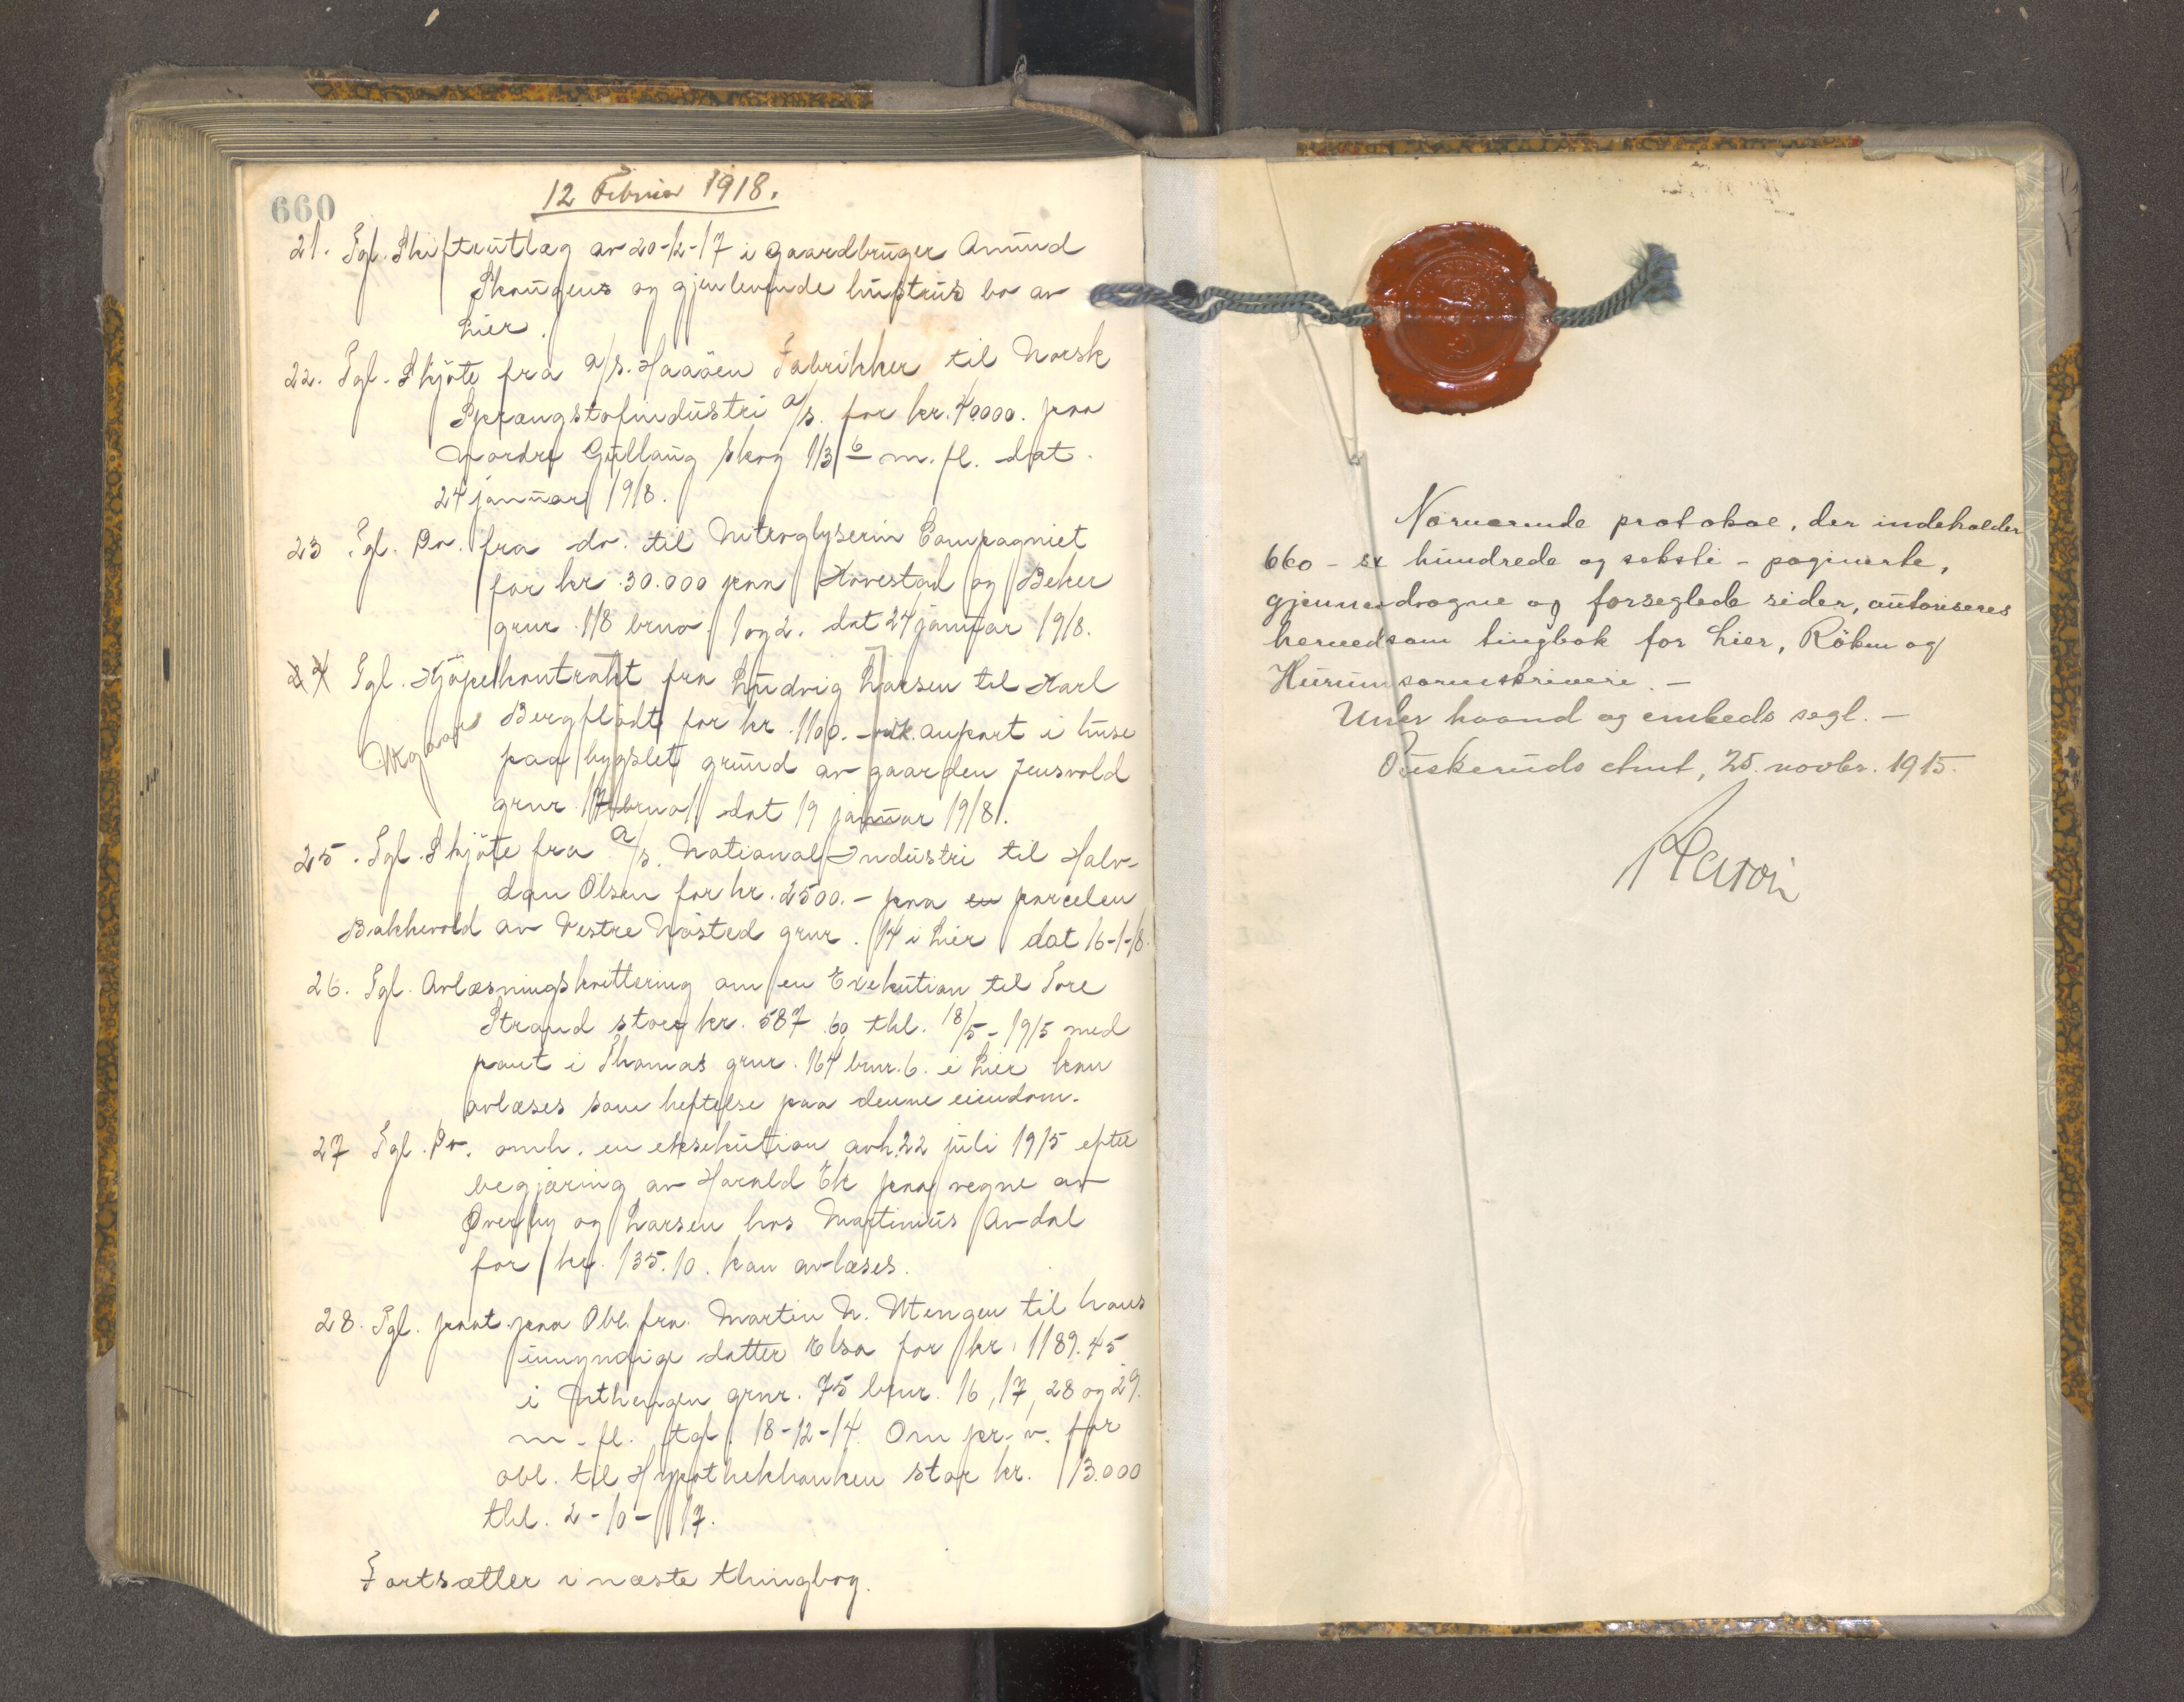 660
12 Februar 1918.
21. Tgl. Skifteutlæg av 20-12-17 i gaardbruger Amund
Skougens og gjenlevende hustrus bo av
Lier.
22. Tgl. Skjöte fra A/S. Haaöen Fabrikker til Norsk
Sprængstofindustri A/S. for kr. 40000. paa
Nordre Gullaug skog 113/6 m. fl. dat.
24 januar 1918.
23 Tgl. Do. fra do. til Nitroglyserin Compagniet
for kr. 30.000 paa Hovestad og Beker
grnr. 118 brno. 1 og 2. dat 24 januar 1918.
24 Tgl. Kjöpekontrakt fra Ludvig Larsen til Karl
Utgaar Bergflödt for kr. 1100.- anpart i huse
paa bygslet grund av gaarden Jensvold
grnr. 17 brno 1 dat 19 januar 1918.
25. Tgl. Skjöte fra A/S. National Industri til Halv-
dan Olsen for kr. 2500.- paa en parcelen
Bakkevold av Vestre Nösted grnr. 14 i Lier dat 16-1-18.
26. Tgl. Avlæsningskvittering om en Exekution til Tore
Strand stor kr. 587.60 thl. 18/5-1915 med
pant i Thomas grnr. 164 bnr. 6. i Lier kan
avlæses som heftelse paa denne eiendom.
27 Tgl. Do. omh. en eksekution avh. 22 juli 1915 efter
begjæring av Harald Ek paa vegne av
Överby og Larsen hos Martinius Avdal
for kr. 135.10. kan avlæses.
28. Tgl. paat. paa Obl. fra Martin N. Utengen til hans
umyndige datter Elsa for kr. 1189.45
i Uthengen grnr. 75 bnr. 16, 17, 28 og 29.
m. fl. tgl. 18-12-14. Om pr. v. for
obl. til Hypothekbanken stor kr. 13.000
thl. 2-10-17.
Fortsætter i næste thingbog.
Nærværende protokol, der indeholder
660 - sex hundrede og seksti - paginerte,
gjennemdragne og forseglede sider, autoriseres
herved som tingbok for Lier, Röken og
Hurum sorenskriveri. -
Under haand og embeds segl. -
Buskeruds amt, 25. novbr. 1915.